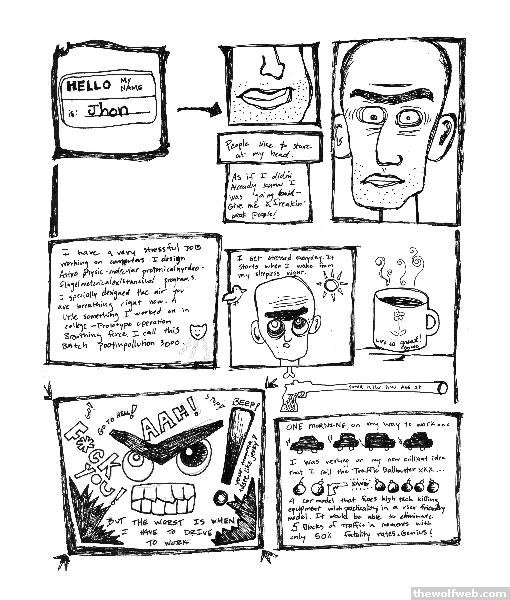 HELLO MY NAME
is: Jhon
People like to stare
at my head.
As if I didn't
Already know I
was going bald-
Give me a freakin-
break people!
I have a very stressful JOB
working on computers I design
Astro physic-molecular
programs.
I specially designed the air you
are breathing right now. A
little something I worked on in
college - Prototype operation
Breathing force. I call this
Batch 3000.
I get stressed everyday. It
starts when I wake from
my sleepless night.
Life is great!
GO TO HELL!
AAH!
STOP!
BEEP!
F*CK
YOU!
BUT THE WORST IS WHEN
I HAVE TO DRIVE
TO WORK
ONE MORNING, on my way to work
I was working on my new brilliant idea
that I call the Traffic XXX...
A car model that fixes high tech killing
equipment with practicality in a user friendly
model. It would be able to eliminate
5 blocks of traffic in moments with
only 50% fatality rates. Genius!
thewolfweb.com